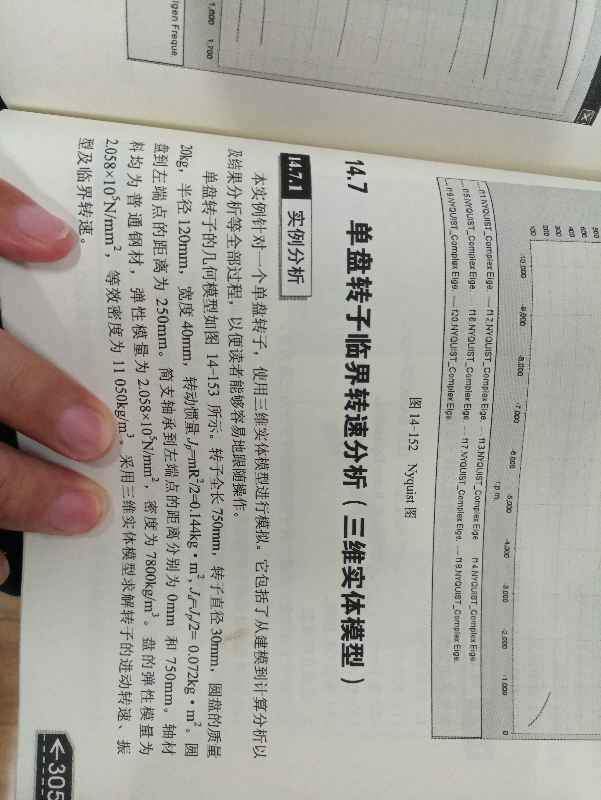 1,600 1,700
igen Freque
800
600
400
300
200
100
-10,000 -9,000 -8,000 -7,000 -6,000 -5,000 -4,000 -3,000 -2,000 -1,000 0
r.p.m.
f11.NYQUIST_Complex Eige. f12.NYQUIST_Complex Eige. f13.NYQUIST_Complex Eige. f14.NYQUIST_Complex Eige.
f15.NYQUIST_Complex Eige. f16.NYQUIST_Complex Eige. f17.NYQUIST_Complex Eige. f18.NYQUIST_Complex Eige.
f19.NYQUIST_Complex Eige. f20.NYQUIST_Complex Eige.
图 14-152 Nyquist 图
14.7 单盘转子临界转速分析（三维实体模型）
14.7.1 实例分析
本实例针对一个单盘转子，使用三维实体模型进行模拟。它包括了从建模到计算分析以
及结果分析等全部过程，以便读者能够容易地跟随操作。
单盘转子的几何模型如图 14-153 所示。转子全长 750mm，转子直径 30mm，圆盘的质量
20kg，半径 120mm，宽度 40mm，转动惯量 Jp=mR²/2=0.144kg·m²，Jd=Jp/2= 0.072kg·m²。圆
盘到左端点的距离为 250mm。简支轴承到左端点的距离分别为 0mm 和 750mm。轴材
料均为普通钢材，弹性模量为 2.058×10⁵N/mm²，密度为 7800kg/m³。盘的弹性模量为
2.058×10⁵N/mm²，等效密度为 11 050kg/m³。采用三维实体模型求解转子的进动转速、振
型及临界转速。
305